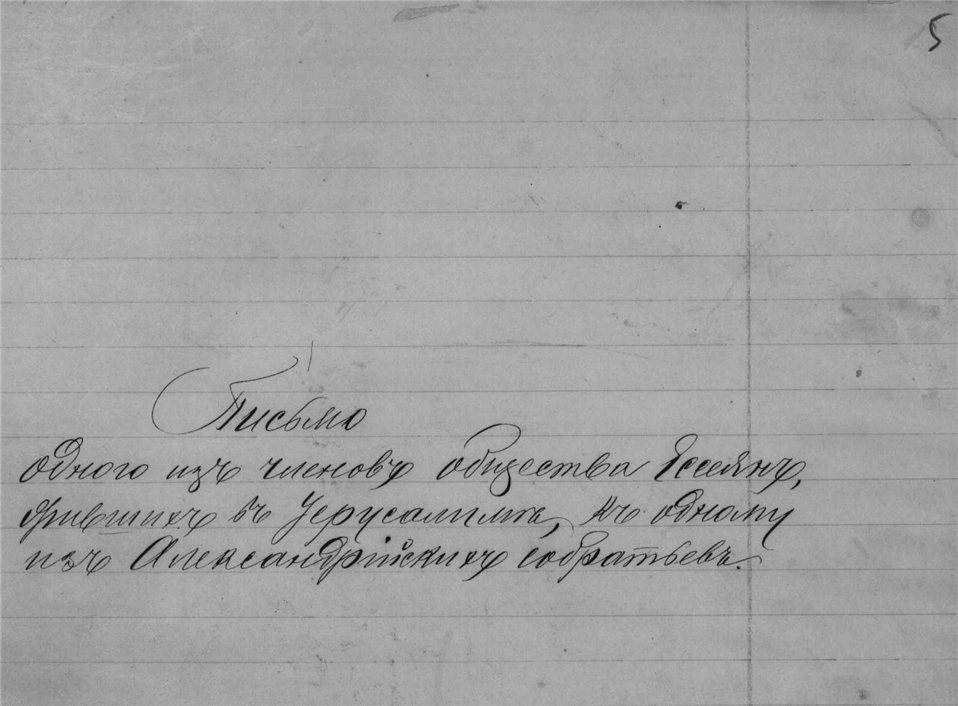 5
Письмо
одного изъ членовъ общества Ессеянъ,
жившихъ въ Іерусалимѣ, къ одному
изъ Александрійскихъ собратьевъ.